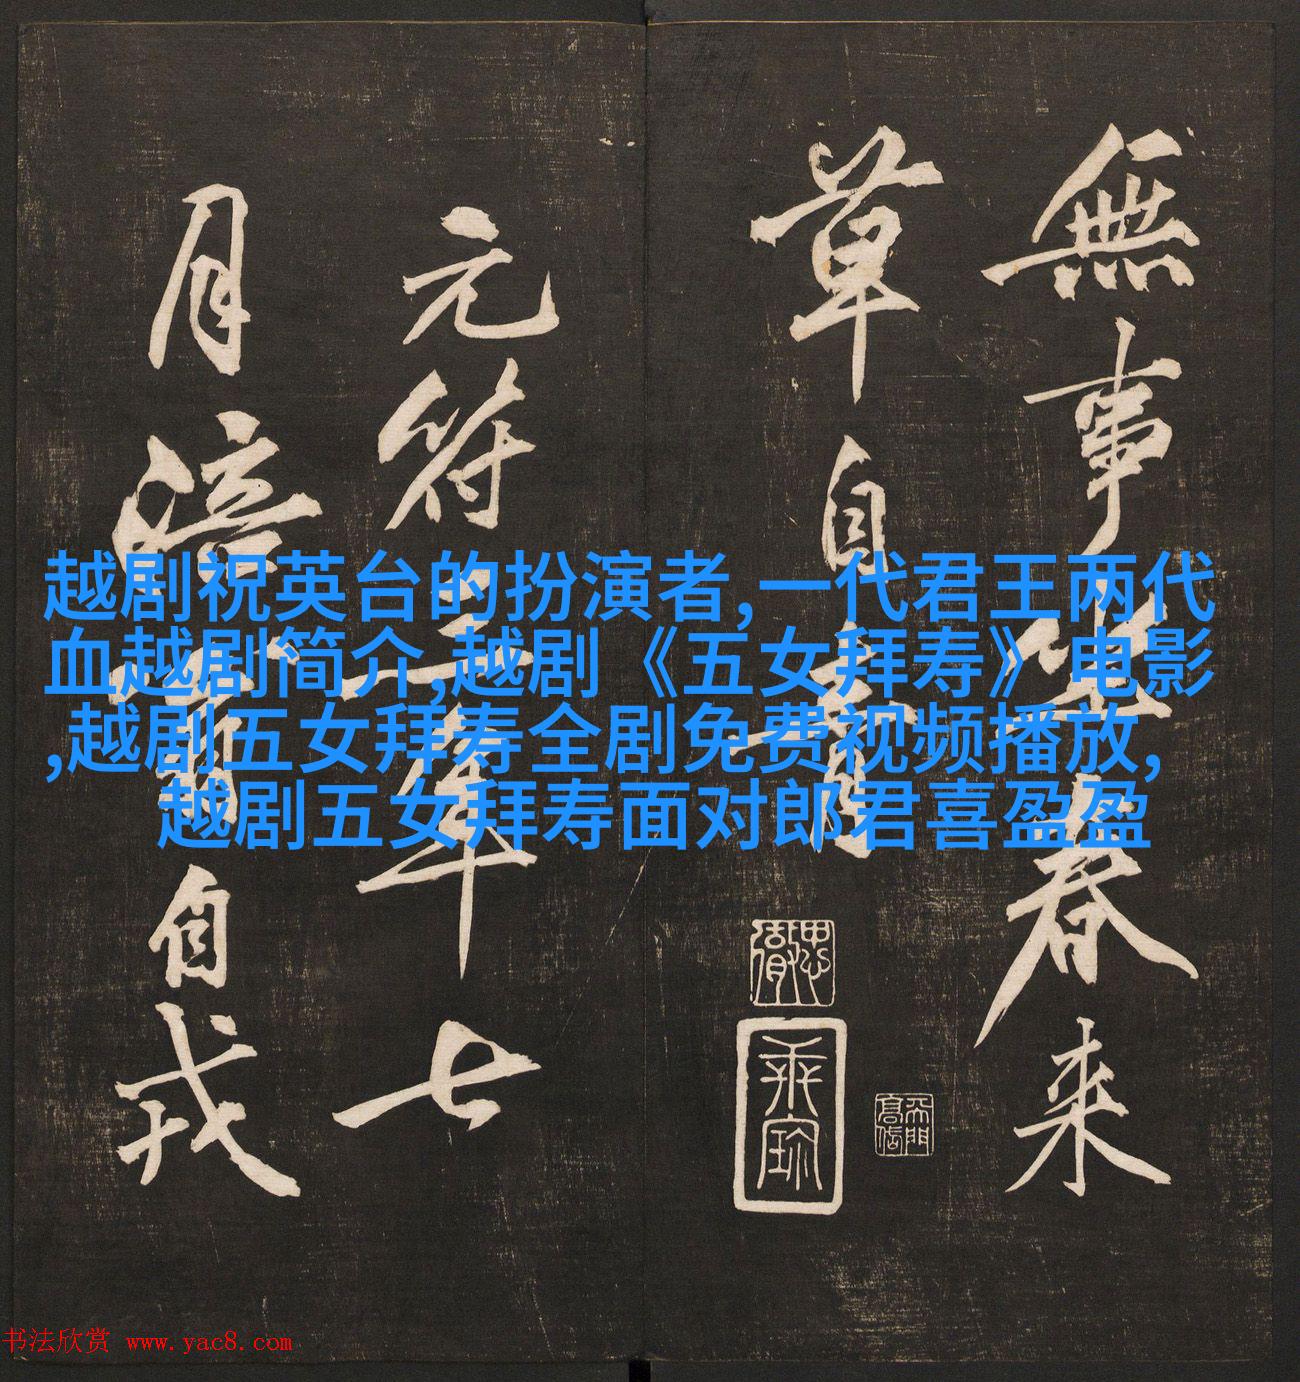 無事坐春来
草自青
元符三年七
月涪翁自戎
越剧祝英台的扮演者,一代君王两代
血越剧简介,越剧《五女拜寿》电影
,越剧五女拜寿全剧免费视频播放,
越剧五女拜寿面对郎君喜盈盈
书法欣赏 www.yac8.com